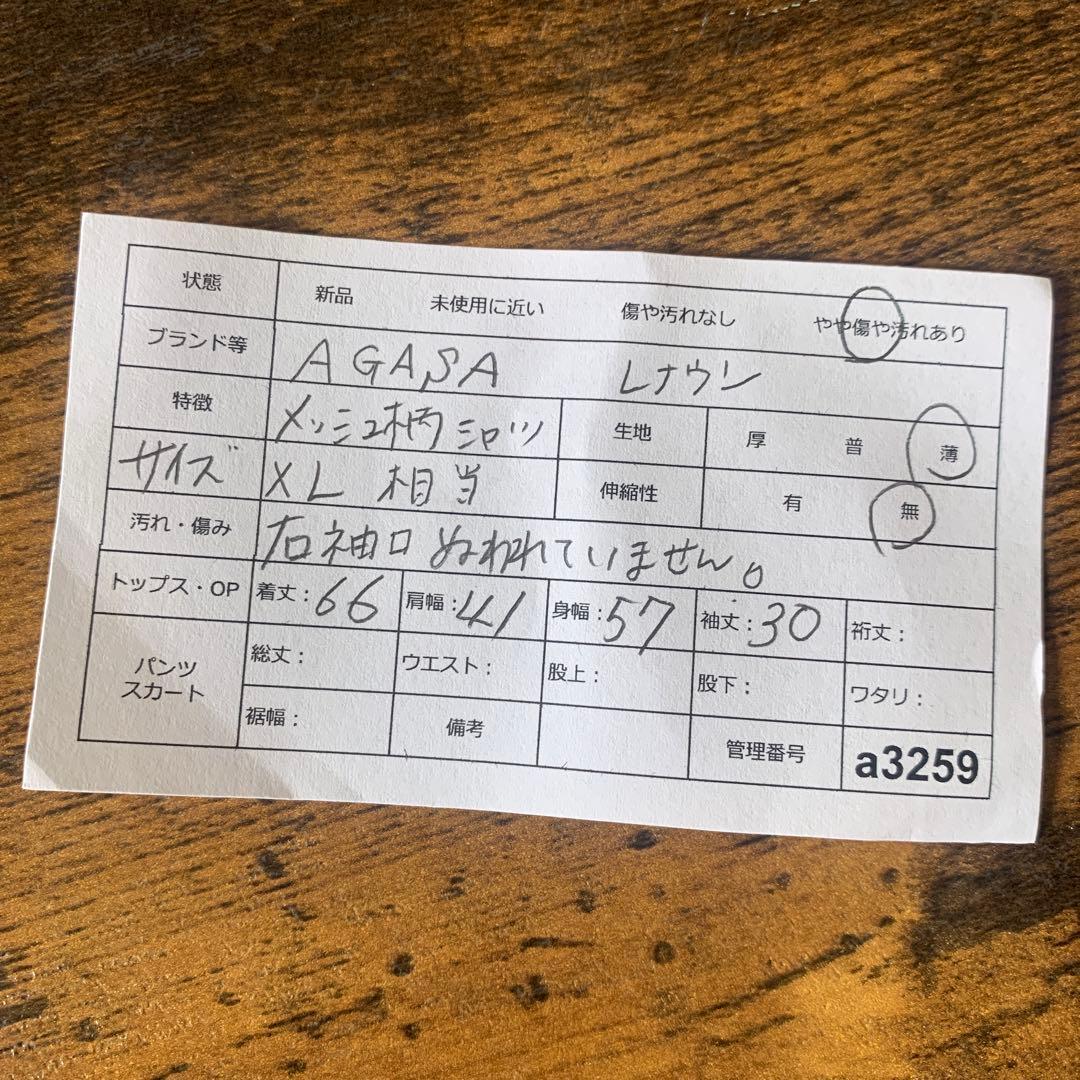 状態 新品 未使用に近い 傷や汚れなし やや傷や汚れあり
ブランド等 AGASA レナウン
特徴 メッシュ柄シャツ 生地 厚 普 薄
サイズ XL 相当 伸縮性 有 無
汚れ・傷み 右袖口 ぬわれていません。
トップス・OP 着丈：66 肩幅：41 身幅：57 袖丈：30 裄丈：
パンツ スカート 総丈： ウエスト： 股上： 股下： ワタリ：
裾幅： 備考 管理番号 a3259